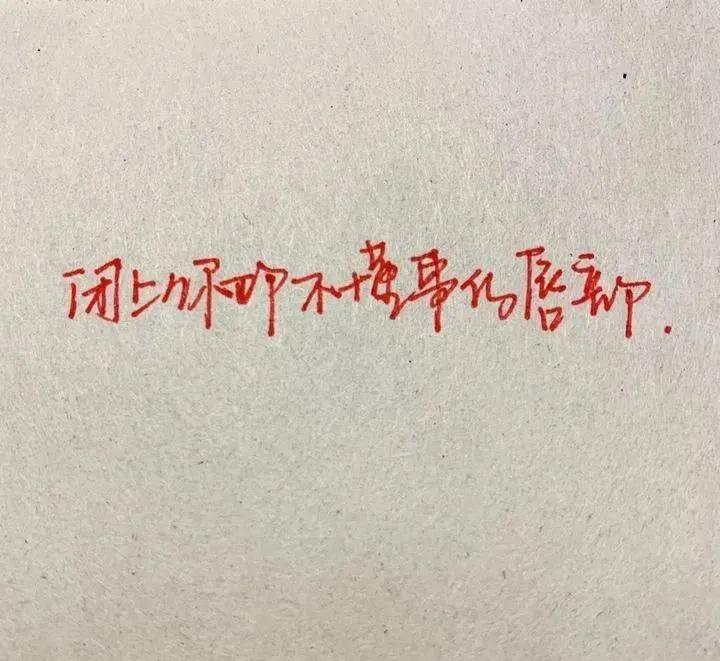 闭上你那不懂事的唇部.